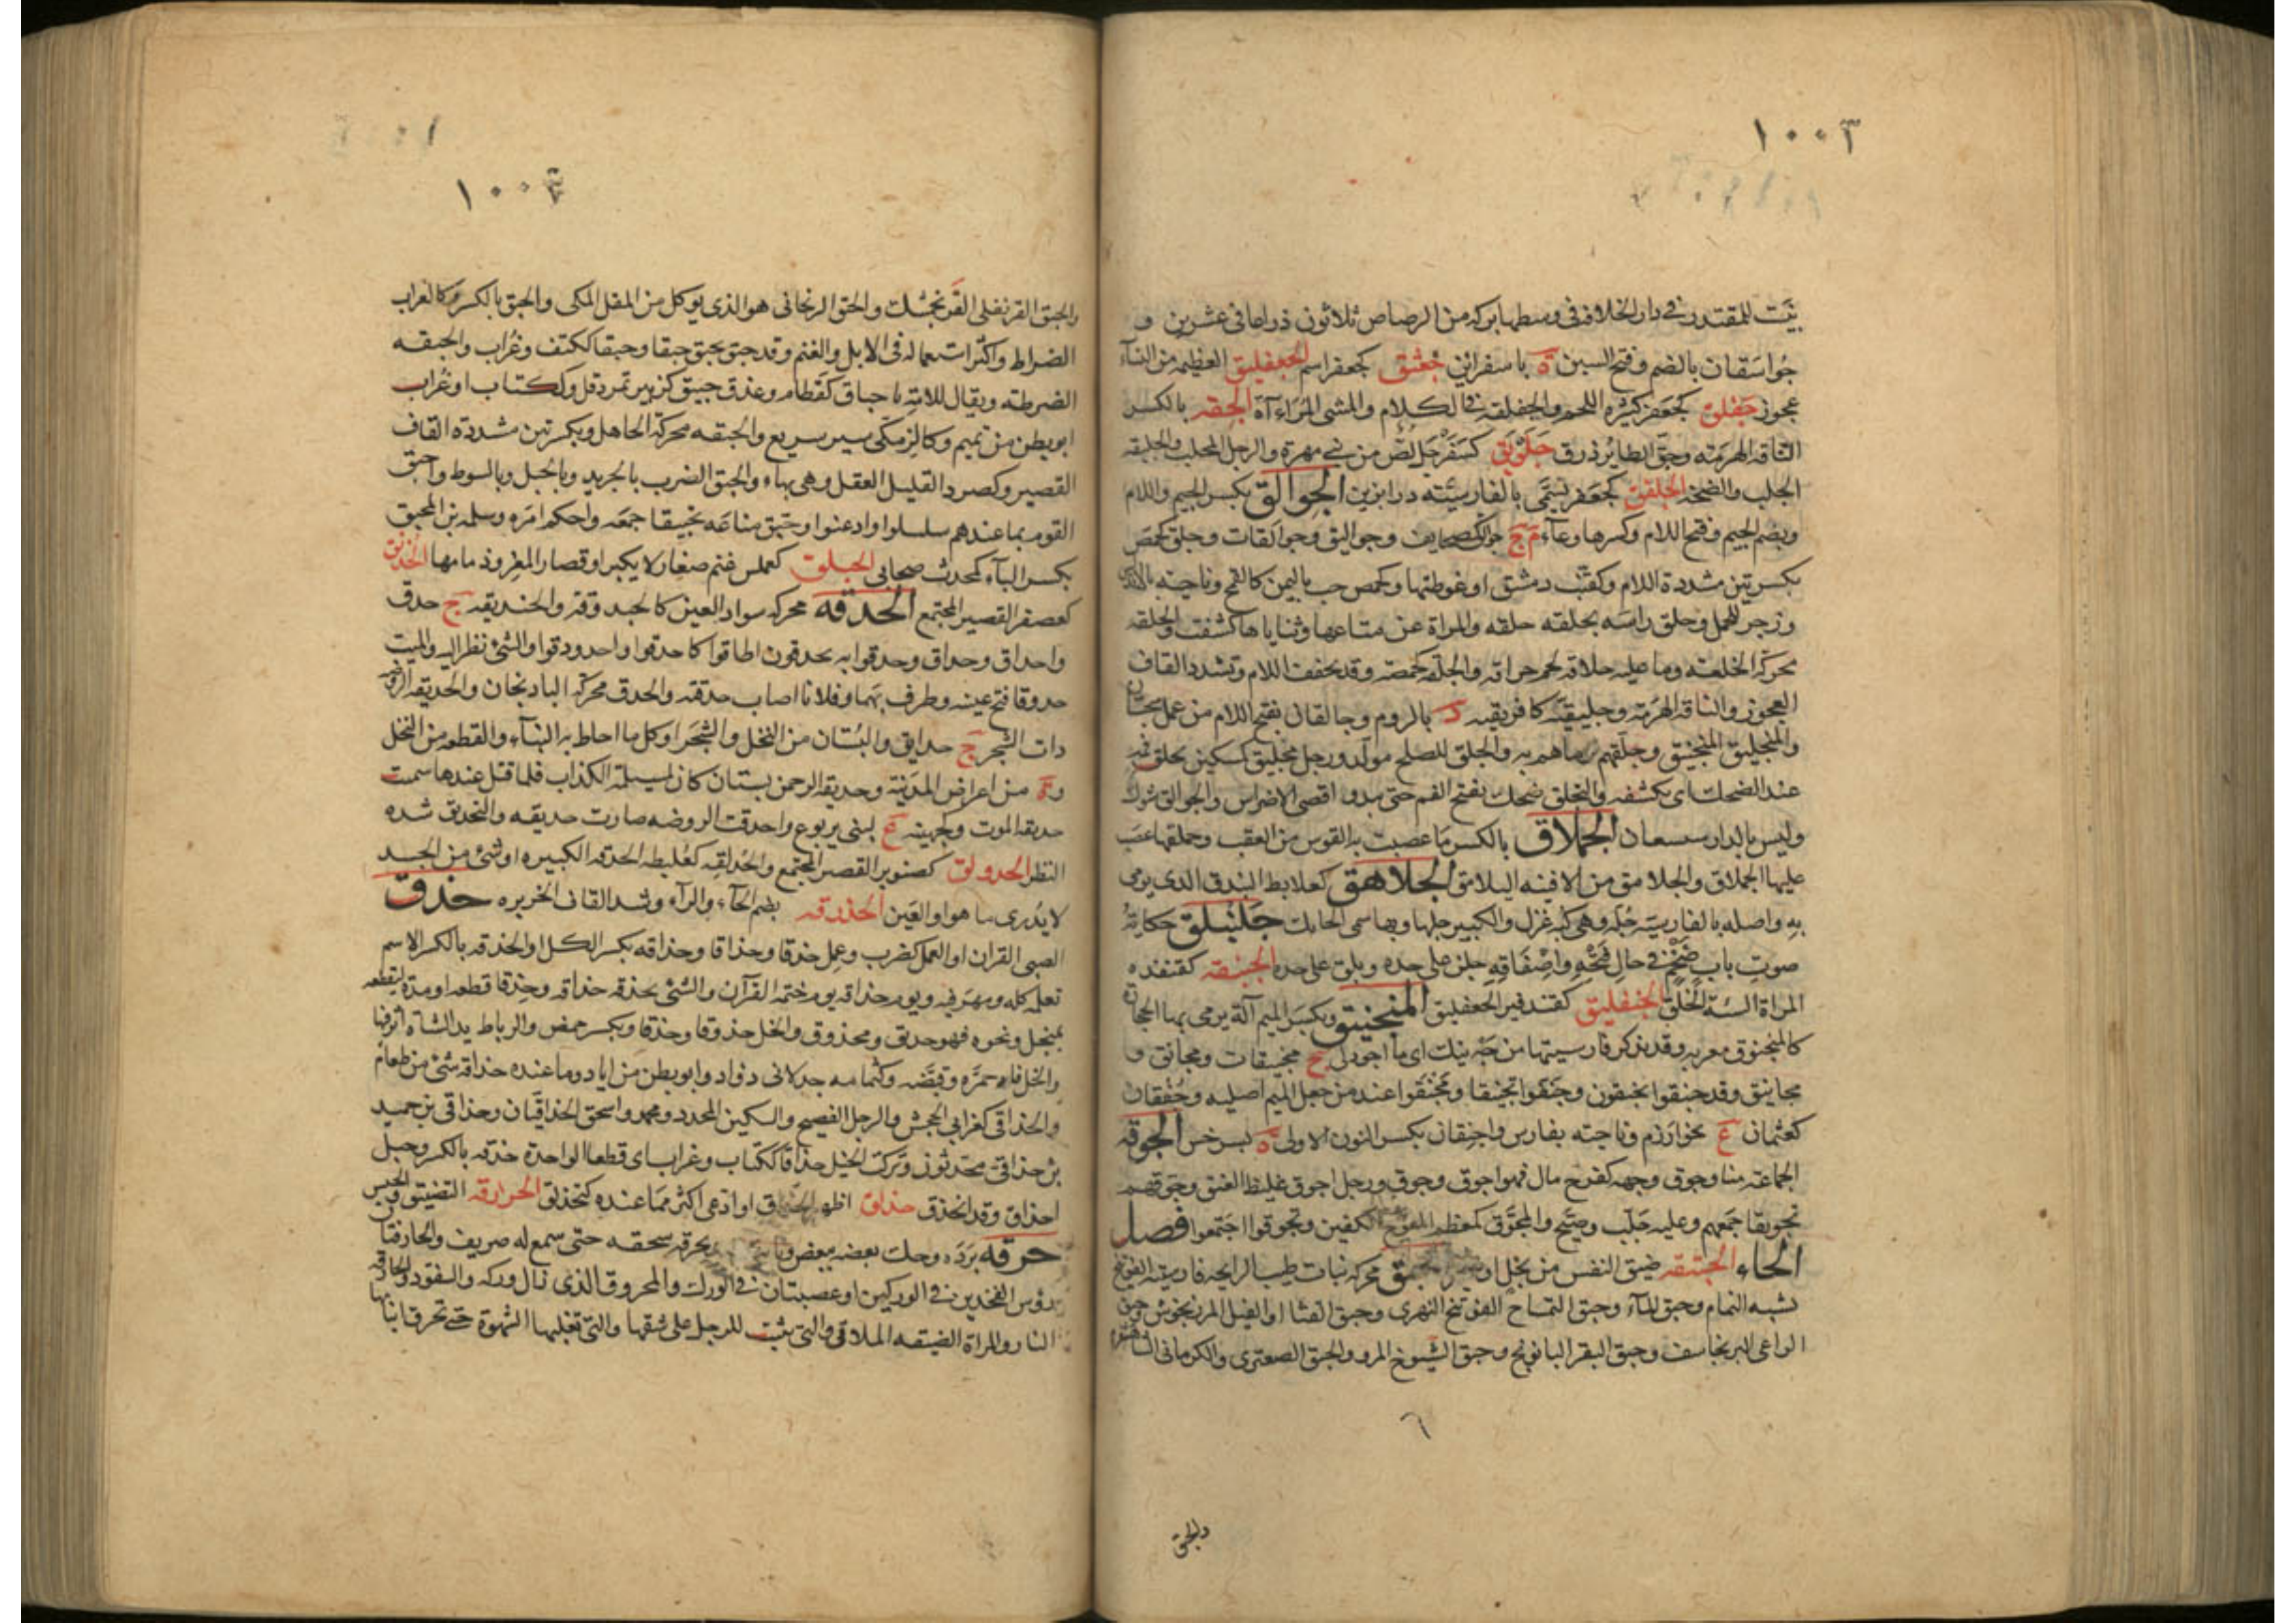 ١٠٠٣
بيت للمقتدر في دار الخلافة في وسطها بركة من الرصاص ثلاثون ذراعا في عشرين و
جواسقان بالضم وفتح السين ة باسفراين جعثق كجعفر اسم الجعفليق العظيمة من النسآء
عجوز جفلق كجعفر كثيره اللحم والجفلقه في الكلام والمشي المراءآة الجقه بالكسر
الناقه الهرمة وجق الطاير ذرق جلوبق كسفرجل لص من بني مهرة والرجل المجلب والجلبقه
الجلب والضجة الجلفق كجعفر يسمى بالفارسيته درابزين الجوالق بكسر الجيم واللام
وبضم الجيم وفتح اللام وكسرها وعآء م ج جوالق كصحايف وجواليق وجوالقات وجلق كحمص
بكسرتين مشددة اللام وكقنب دمشق او غوطتها وكحمص حب باليمن كالقمح وناحيته بالاندلس
وزجر للجمل وجلق راسه يجلقه حلقه والمراة عن متاعها وثناياها كشفت والجلقه
محركة الخلعته وما عليه جلاقة لحم جراقه والجلقه كحمصة وقد يخفف اللام وتشدد القاف
العجوز والناقة الهرمته وجليقيه كافريقيه د بالروم وجالقان بفتح اللام من عمل سجستان
والمنجليق المنجنيق وجلقهم رماهم به والجلق للصلح مولد ورجل مجليق كسكين يجلق فمه
عند الضحك اى يكشفه والتجلق ضحك بفتح الفم حتى يبدو اقصى الاضراس والجوالق شوك
وليس بالدارسسعان الجملاق بالكسر ما عصبت به القوس من العقب وجملقها عصب
عليها الجملاق والجلامق من الاقبيه اليلامق الجلاهق كعلابط البندق الذى يرمى
به واصله بالفارسية جله وهي كبه غزل والكبير جلها وبها سمى الحايك جلنبلق حكاية
صوت باب ضخم في حال فتحه واصفاقه جلن على حده وبلق على حده الجنبقه كقنفذه
المراة السيئة الخلق الجنفليق كقندفير الجعفليق المنجنيق ويكسر الميم آلة يرمى بها الحجارة
كالمنجنوق معربه وقد يذكر فارسيتها من جه نيك اى ما اجودني ج منجنيقات ومجانق و
مجانيق وقد جنقوا يجنقون وجنقوا تجنيقا ومجنقوا عند من جعل الميم اصليه وجنقان
كعثمان ع بخوارزم وناحيته بفارس واجنقان بكسر النون الاولى ة بسرخس الجوقة
الجماعة منا وجوق وجهه كفرح مال فهو اجوق وجوق ورجل اجوق غليظ العنق وجوقهم
تجويقا جمعهم وعليه جلب وصيح والمجوق كمعظم المعوج الكفين وتجوقوا اجتمعوا فصل
الحاء الحبتقه ضيق النفس من بخل او الحبق محركه نبات طيب الرايحه فارسيته الفوتنج
يشبه النمام وحبق المآء وحبق التمساح الفوتنج النهرى وحبق القثا او الفيل المرزنجوش وحبق
الراعى البرنجاسف وحبق البقر البابونج وحبق الشيوخ المرو والحبق الصعترى والكرمانى الشاهسفرم
٦
والحبق
١٠٠٣
والحبق القرنفلى الفرنجمشك والحبق الريحانى هو الذى يوكل من المقل المكى والحبق بالكسر وكالغراب
الضراط واكثر استعماله في الابل والغنم وقد حبق يحبق حبقا وحبقا ككتف وغراب والحبقه
الضرطته ويقال للامة يا حباق كقطام وعذق حبيق كزبير تمر دقل وككتاب او غراب
ابو بطن من تميم وكالزمكى سير سريع والحبقه محركة الجاهل وبكسرتين مشددة القاف
القصير وكصرد القليل العقل وهى بهاء والحبق الضرب بالجريد وبالحبل وبالسوط واحبق
القوم بما عندهم سلسلوا واذعنوا وحبق متاعه تحبيقا جمعه واحكم امره وسلمه بن المحبق
بكسر البآء كمحدث صحابى الحبلق كعملس غنم صغار لا يكبر او قصار المعز وذمامها الحذنق
كعصفر القصير المجتمع الحدقه محركه سواد العين كالحندوقة والحنديقه ج حدق
واحداق وحداق وحدقوا به يحدقون اطافوا كاحدقوا واحدودقوا والشئ نظر اليه والميت
حدوقا فتح عينيه وطرف بهما وفلانا اصاب حدقته والحدق محركة الباذنجان والحديقه الروضة
ذات الشجر ج حدايق والبستان من النخل والشجر او كل ما احاط به البنآء والقطعه من النخل
وة من اعراض المدينة وحديقة الرحمن بستان كان لمسيلمة الكذاب فلما قتل عندها سميت
حديقة الموت وكجهينه ع لبنى يربوع واحدقت الروضه صارت حديقه والتحديق شده
النظر الحدولق كصنوبر القصير المجتمع والحدلقه كعلبطه الحدقه الكبيره او شئ من الجسد
لا يدرى ما هو او العين الحذرقه بضم الحآء والرآء وشد القاف الخزيره حذق
الصبى القران او العمل كضرب وعلم حذقا وحذاقا وحذاقه بكسر الكل او الحذقه بالكسر الاسم
تعلمه كله ومهر فيه ويوم حذاقه يوم ختمه القرآن والشئ يحذقه حذاقه وحذقا قطعه او مده ليقطعه
بمنجل ونحوه فهو حذيق ومحذوق والخل حذوقا وحذقا ويكسر حمض والرباط يد الشآة اثر فيها
والخل فاه حمزه وقبضه وكثمامه جد لابى دواد وابو بطن من اياد وما عنده حذاقة شئ من طعام
والحذاقى كغرابى الجحش والرجل الفصيح والسكين المحدد ومحمد واسحق الحذاقيان وحذاقى بن حميد
بن حذاقى محدثون وتركت الحبل حذاقا ككتاب وغراب اى قطعا الواحدة حذقه بالكسر وحبل
احذاق وقد انحذق حذلق اظهر الحذق او ادعى اكثر مما عنده كتحذلق الحرازقه التضييق والحبس
حرقه برده وحك بعضه ببعض ونابه يحرقه سحقه حتى سمع له صريف والحارقتان
رؤس الفخذين في الوركين او عصبتان في الورك والمحروق الذى زال وركه والسفود والحارقه
النار والمراة الضيقه الملاقى والتى تثبت للرجل على شقها والتى تغلبها الشهوة حتى تحرق انيابها